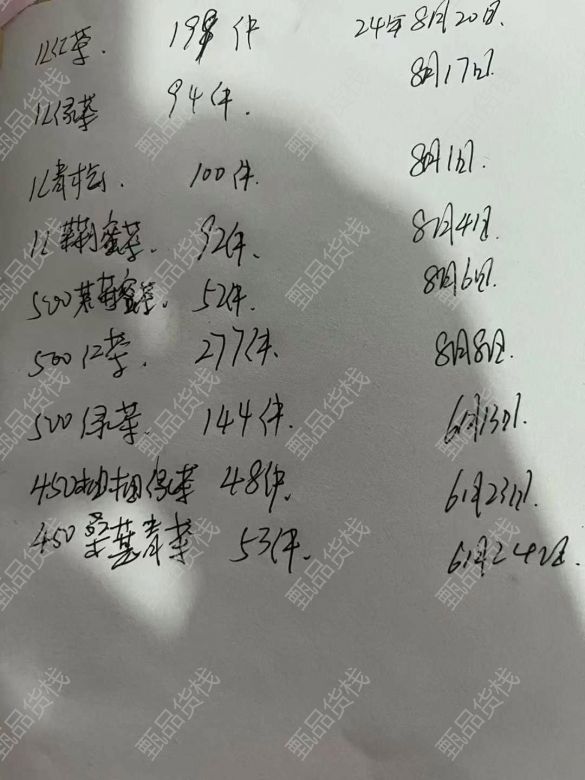 1L红茶. 198件 24年8月20日
8月17日.
1L绿茶 94件.
1L青柑. 100件. 8月1日.
1L茉莉蜜茶. 92件. 8月4日.
500茉莉蜜茶. 52件. 8月6日.
500红茶. 277件. 8月8日.
500绿茶. 144件. 6月13日.
450柑柑绿茶 48件. 6月23日.
450 青茶 53件. 6月24日.
甄品货栈